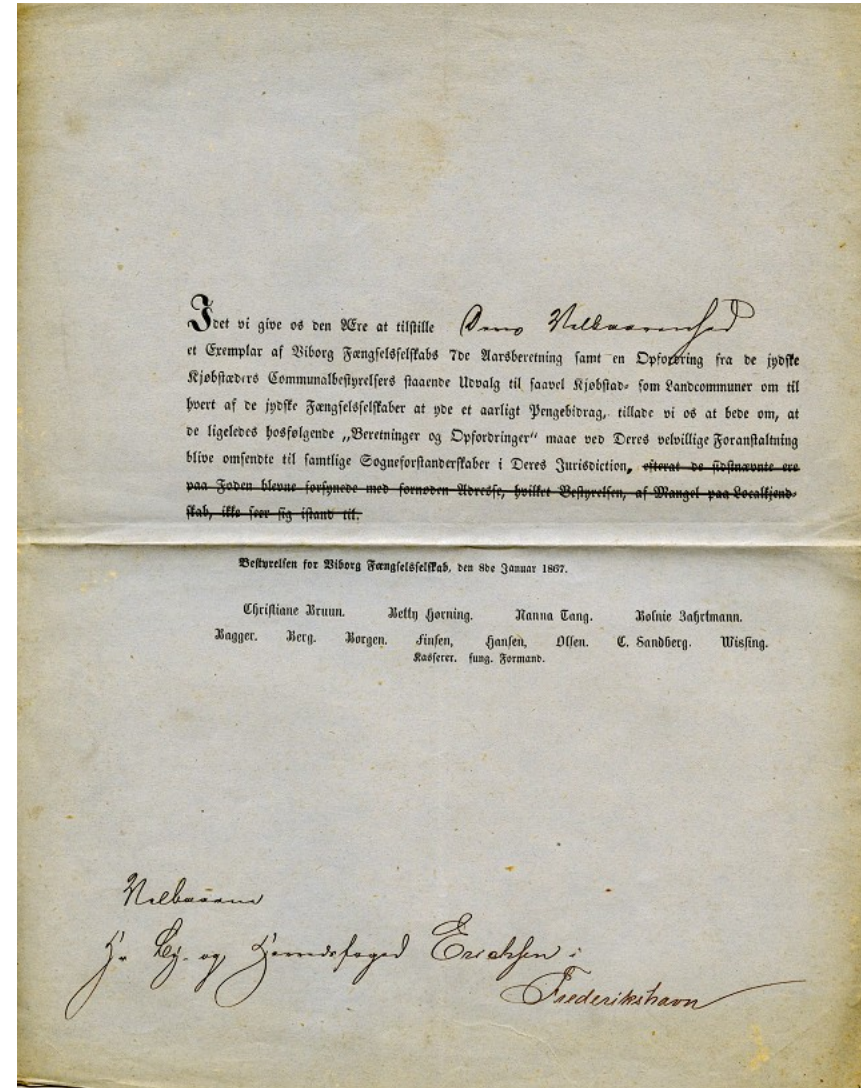 Idet vi give os den Ære at tilstille Deres Velbaarenhed
et Exemplar af Viborg Fængselsselskabs 7de Aarsberetning samt en Opfordring fra de jydske
Kjøbstæders Communalbestyrelsers staaende Udvalg til saavel Kjøbstad- som Landcommuner om til
hvert af de jydske Fængselsselskaber at yde et aarligt Pengebidrag, tillade vi os at bede om, at
de ligeledes hosfølgende „Beretninger og Opfordringer“ maae ved Deres velvillige Foranstaltning
blive omsendte til samtlige Sogneforstanderskaber i Deres Jurisdiction, efterat de sidstnævnte ere
paa Foden blevne forsynede med fornøden Adresse, hvilket Bestyrelsen, af Mangel paa Localkjend-
skab, ikke seer sig istand til.
Bestyrelsen for Viborg Fængselsselskab, den 8de Januar 1867.
Christiane Bruun. Betty Hørning. Nanna Tang. Bolnie Zahrtmann.
Bagger. Berg. Borgen. Finsen, Hansen, Olsen. C. Sandberg. Wissing.
Kasserer. fung. Formand.
Velbaarne
Hr. By- og Herredsfoged Erichsen i
Frederikshavn